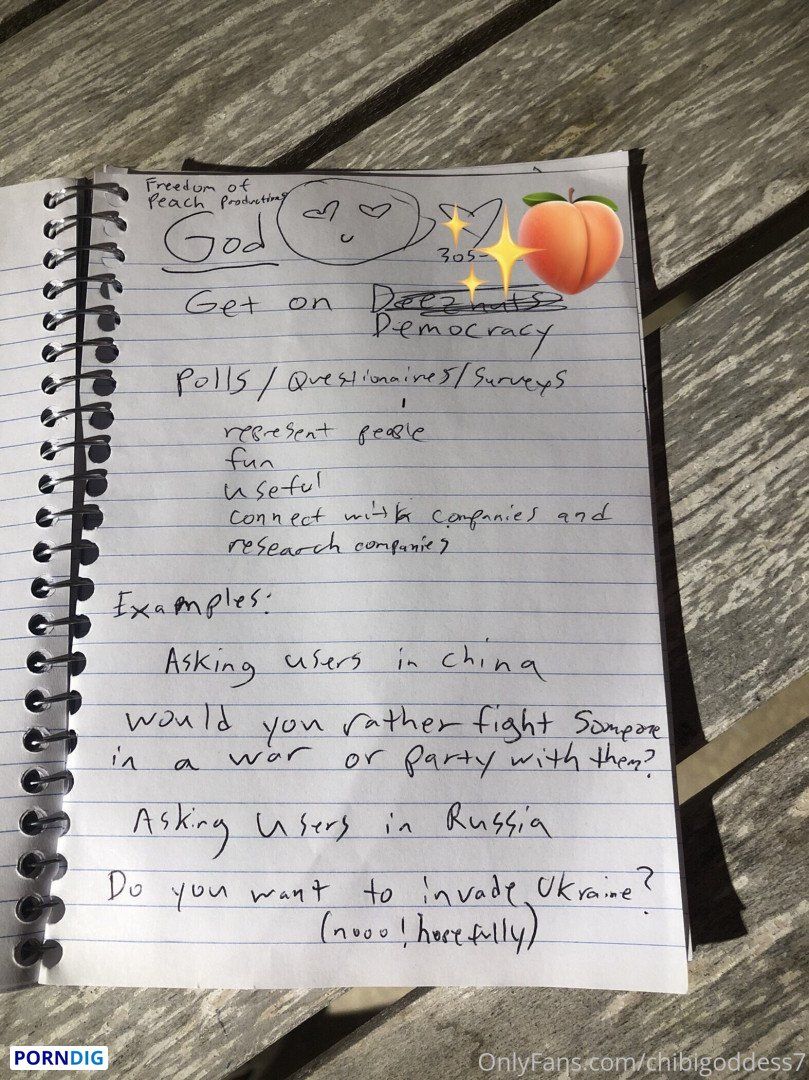 Freedom of
Peach Productions
God
305-
Get on Deeznuts
Democracy
Polls / Questionaires / Surveys
represent people
fun
useful
connect with companies and
research companies
Examples:
Asking users in china
would you rather fight someone
in a war or party with them?
Asking users in Russia
Do you want to invade Ukraine?
(nooo! hopefully)
PORNDIG
OnlyFans.com/chibigoddess7